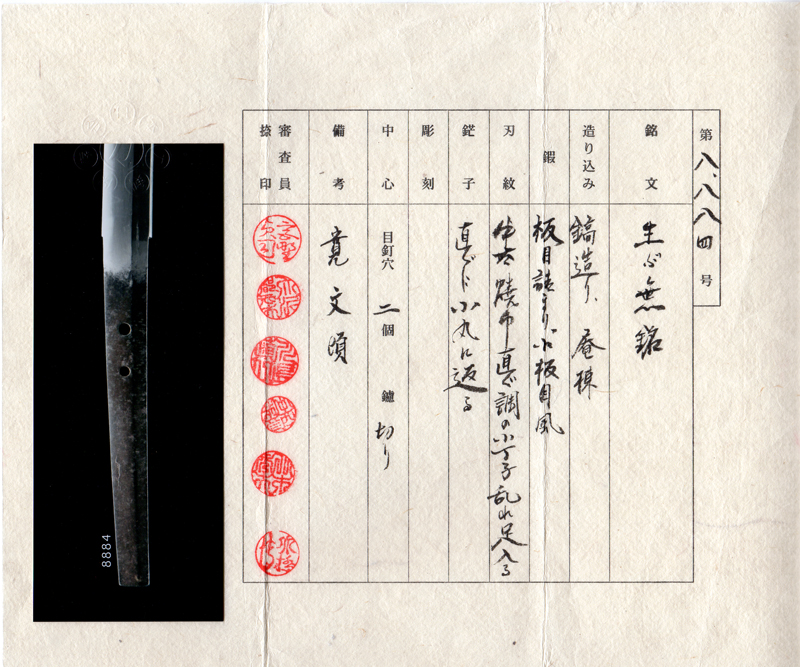 第八、八八四号
銘文 生ぶ無銘
造り込み 鎬造り、庵棟
鍜 板目詰まり小板目風
刃紋 焼巾直ぐ調の小丁子乱れ足入る
鋩子 直ぐに小丸に返る
彫刻
中心 目釘穴 二個 鑢 切り
備考 寛文頃
審査員捺印
8884